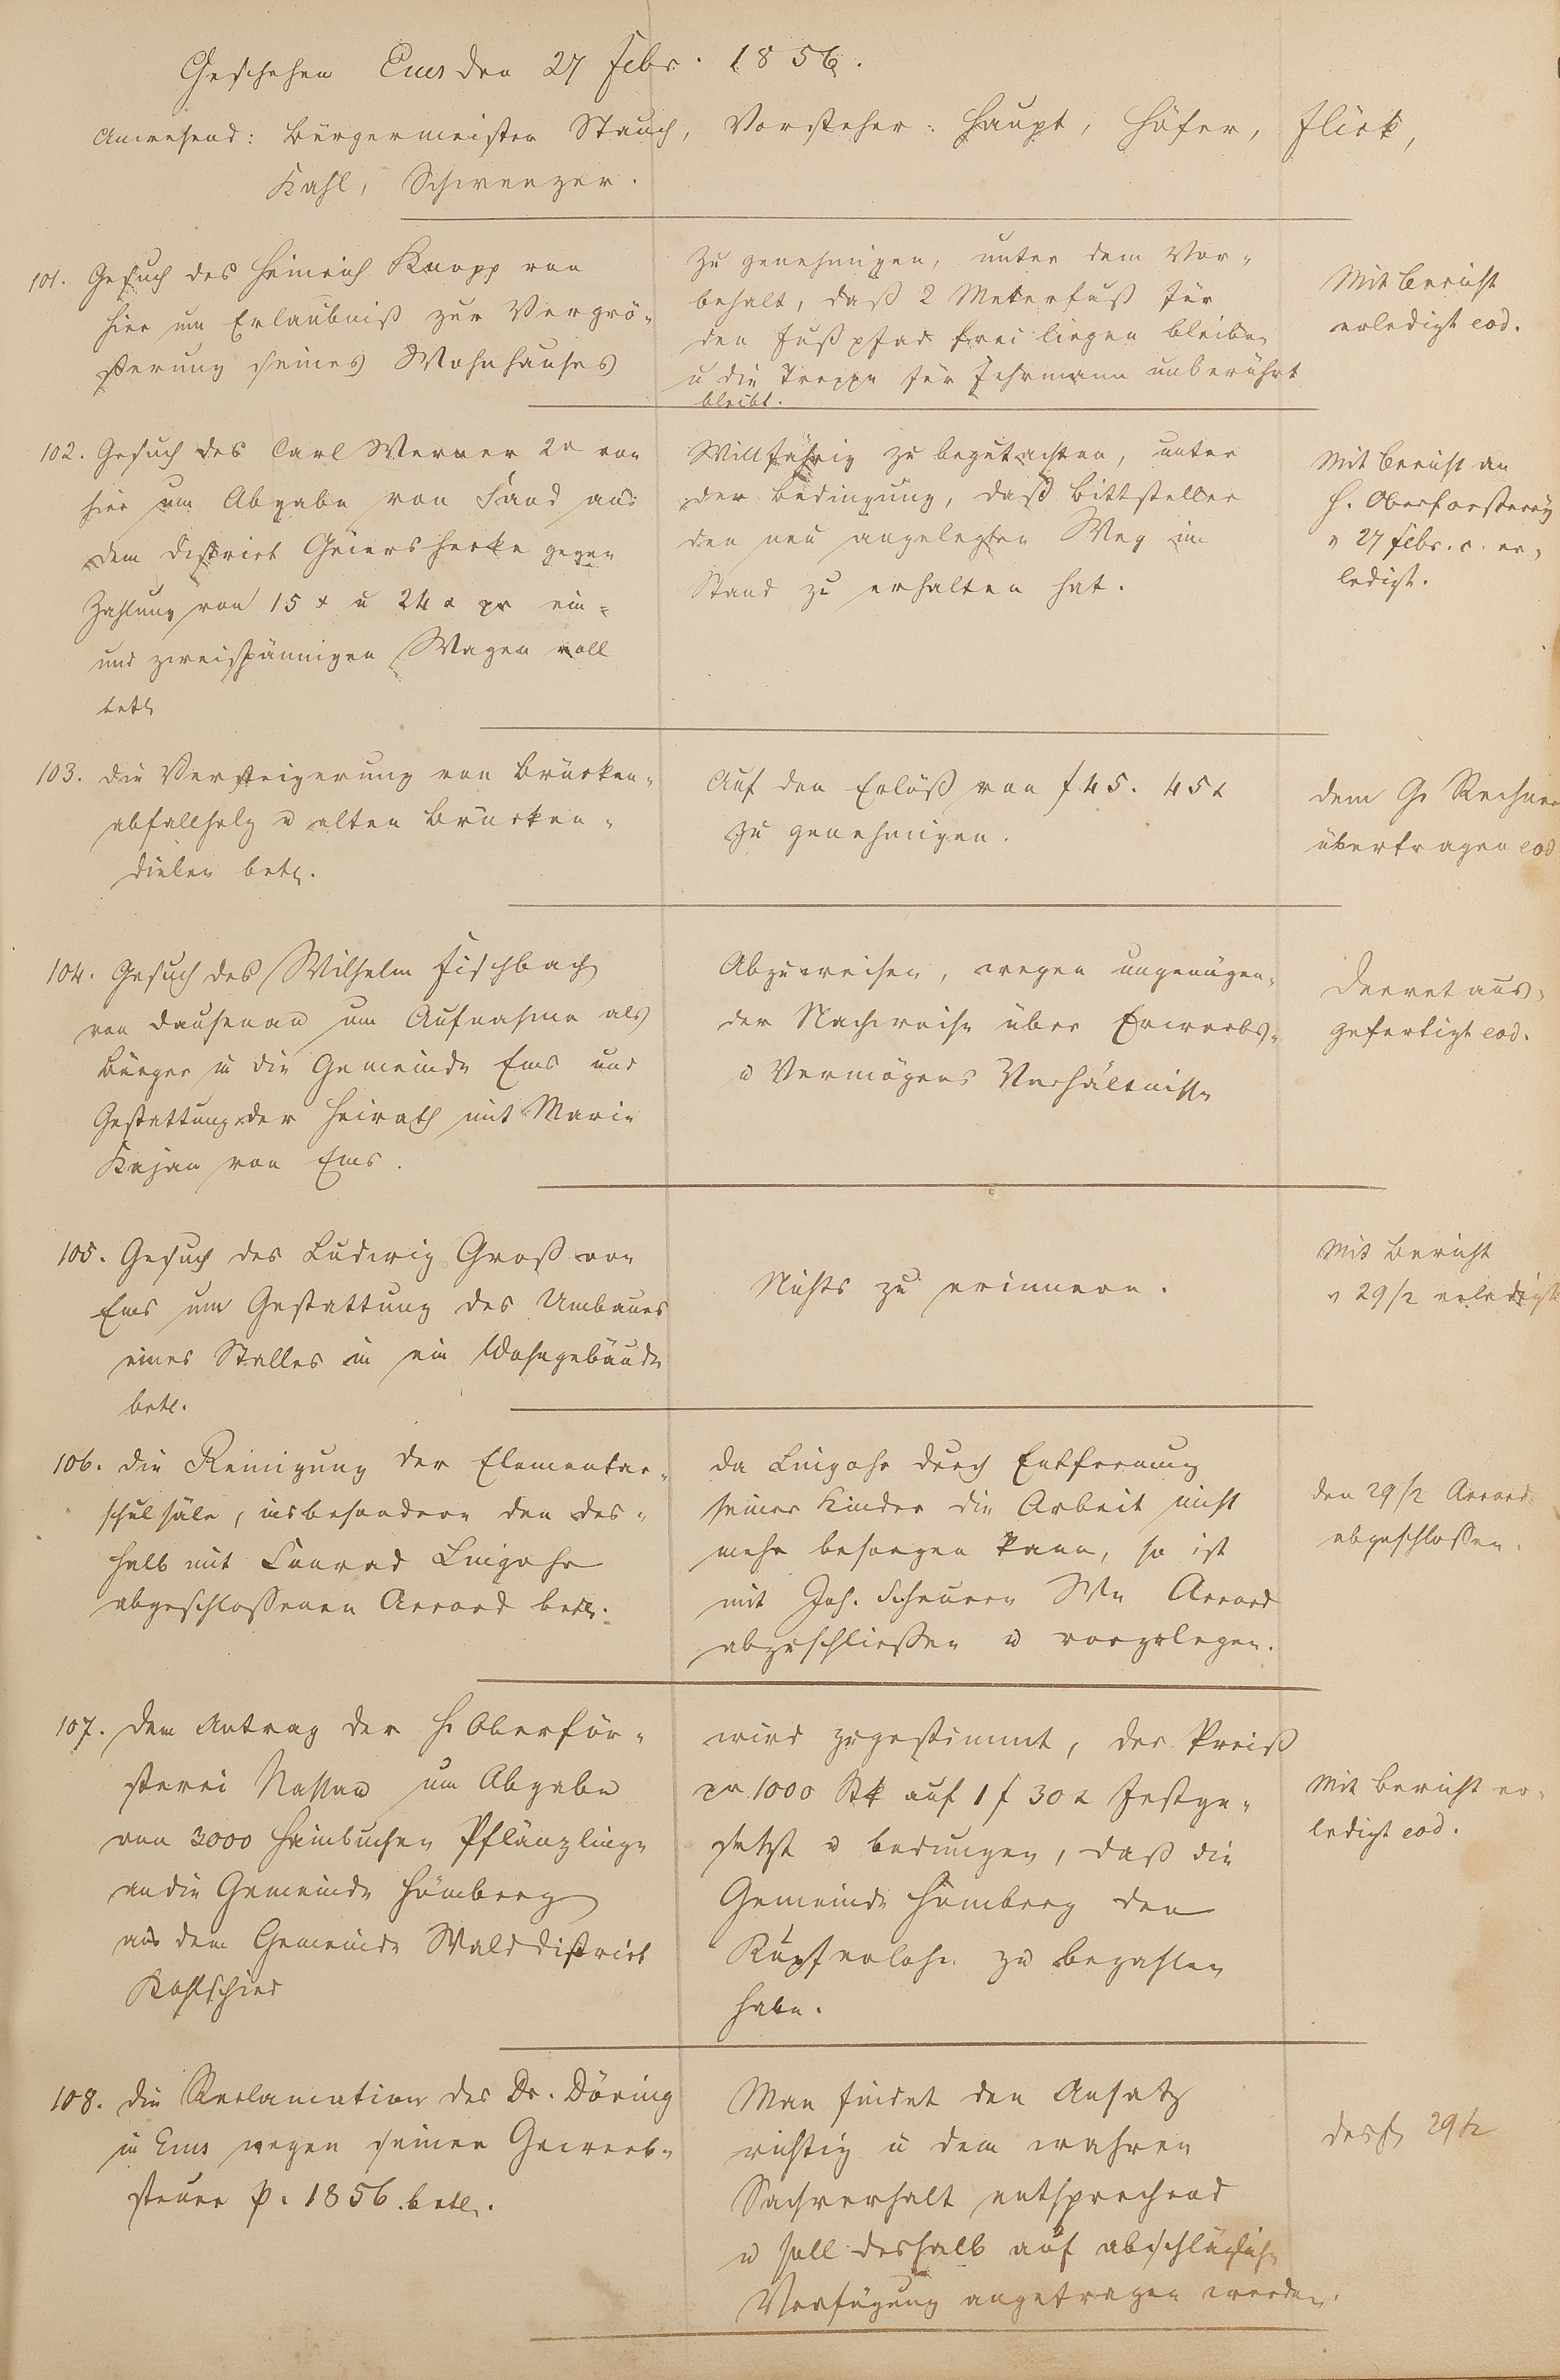 Geschehen Ems den 27 Febr. 1856.
Anwesend: Bürgermeister Stauch, Vorsteher: Haupt, Höfer, Flick,
Kahl, Schwenzer.
101. Gesuch des Heinrich Knopp von
hier um Erlaubniß zur Vergrö-
ßerung seines Wohnhauses
Zu genehmigen, unter dem Vor-
behalt, daß 2 Meterfuß für
den Fußpfad frei liegen bleiben
u die Treppe für Fehrmann unberührt
bleibt.
Mit Bericht
erledigt eod.
102. Gesuch des Carl Werner 2r von
hier um Abgabe von Sand aus
dem District Geiershecke gegen
Zahlung von 15 x u 24 x pr ein-
und zweispännigen Wagen voll
betr.
Willfährig zu begutachten, unter
der Bedingung, daß Bittsteller
den neu angelegten Weg im
Stand zu erhalten hat.
Mit Bericht an
H. Oberforsterey
v 27 Febr. c. er-
ledigt.
103. Die Versteigerung von Brücken-
abfallholz u alten Brücken-
dielen betr.
Auf den Erlöß von f 45. 45 x
zu genehmigen.
Dem G. Rechner
übertragen eod
104. Gesuch des Wilhelm Fischbach
von Dausenau um Aufnahme als
Bürger in die Gemeinde Ems und
Gestattung der Heirath mit Marie
Kajan von Ems.
Abzuweisen, wegen ungenügen-
der Nachweise über Erwerbs-
u Vermögens Verhältnisse
Decret aus-
gefertigt eod.
105. Gesuch des Ludwig Groß von
Ems um Gestattung des Umbaues
eines Stalles in ein Wohngebäude
betr.
Nichts zu erinnern.
Mit Bericht
v 29/2 erledigt
106. Die Reinigung der Elementar-
schulsäle, insbesondere den des-
halb mit Conrad Lingohr
abgeschlossenen Accord betr.
Da Lingohr durch Entfernung
seiner Kinder die Arbeit nicht
mehr besorgen kann, so ist
mit Joh. Scheuern We Accord
abzuschließen u vorzulegen.
den 29/2 Accord
abgeschlossen.
107. Dem Antrag der H. Oberför-
sterei Nassau um Abgabe
von 3000 Hainbuchen Pflänzlinge
an die Gemeinde Hömberg
aus dem Gemeinde Walddistrict
Kohlschied
wird zugestimmt, der Preiß
pr 1000 Stk auf 1 f 30 x festge-
setzt u bedungen, daß die
Gemeinde Hömberg den
Rupferlohn zu bezahlen
habe.
Mit Bericht er-
ledigt eod.
108. Die Reclamation des Dr. Döring
in Ems wegen seiner Gewerb-
steuer p. 1856 betr.
Man findet den Ansatz
richtig u dem wahren
Sachverhalt entsprechend
u soll deshalb auf abschlägliche
Verfügung angetragen werden.
desgl. 29/2